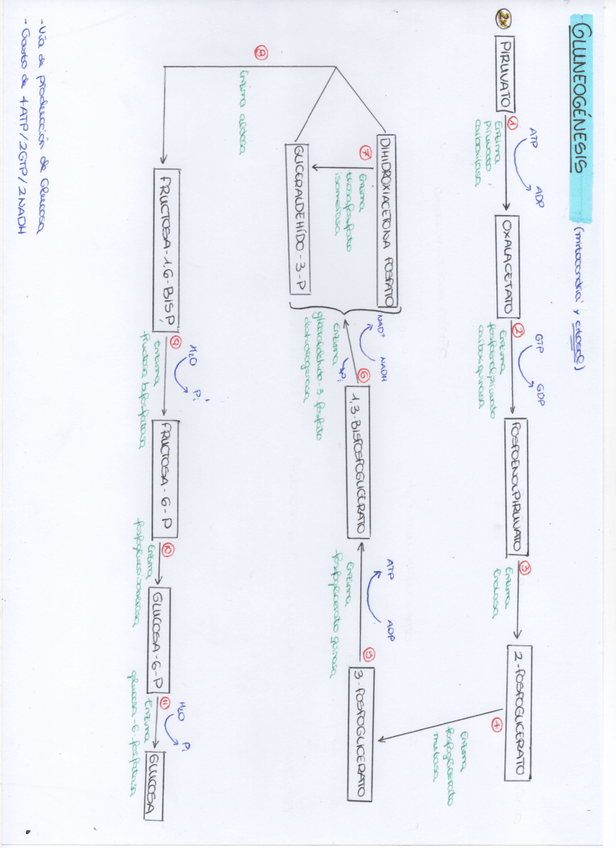 GLUNEOGÉNESIS
(mitocondria y citosol)
2x
PIRUVATO
1
ATP
ADP
Enzima
piruvato
carboxilasa
OXALACETATO
2
GTP
GDP
Enzima
fosfoenolpiruvato
carboxiquinasa
FOSFOENOLPIRUVATO
3
Enzima
Enolasa
2-FOSFOGLICERATO
4
Enzima
fosfoglicerato
mutasa
3-FOSFOGLICERATO
5
ADP
ATP
Enzima
fosfoglicerato quinasa
1,3-BISFOSFOGLICERATO
6
NADH
NAD+
Pi
Enzima
gliceraldehído-3-fosfato
deshidrogenasa
DIHIDROXIACETONA FOSFATO
7
Enzima
triosafosfato
isomerasa
GLICERALDEHÍDO-3-P
8
Enzima aldolasa
FRUCTOSA-1,6-BISP
9
H2O
Pi
Enzima
fructosa bifosfatasa
FRUCTOSA-6-P
10
Enzima
fosfogluco isomerasa
GLUCOSA-6-P
11
H2O
Pi
Enzima
glucosa-6-fosfatasa
GLUCOSA
-Vía de producción de Glucosa
-Gasto de 4ATP/2GTP/2NADH